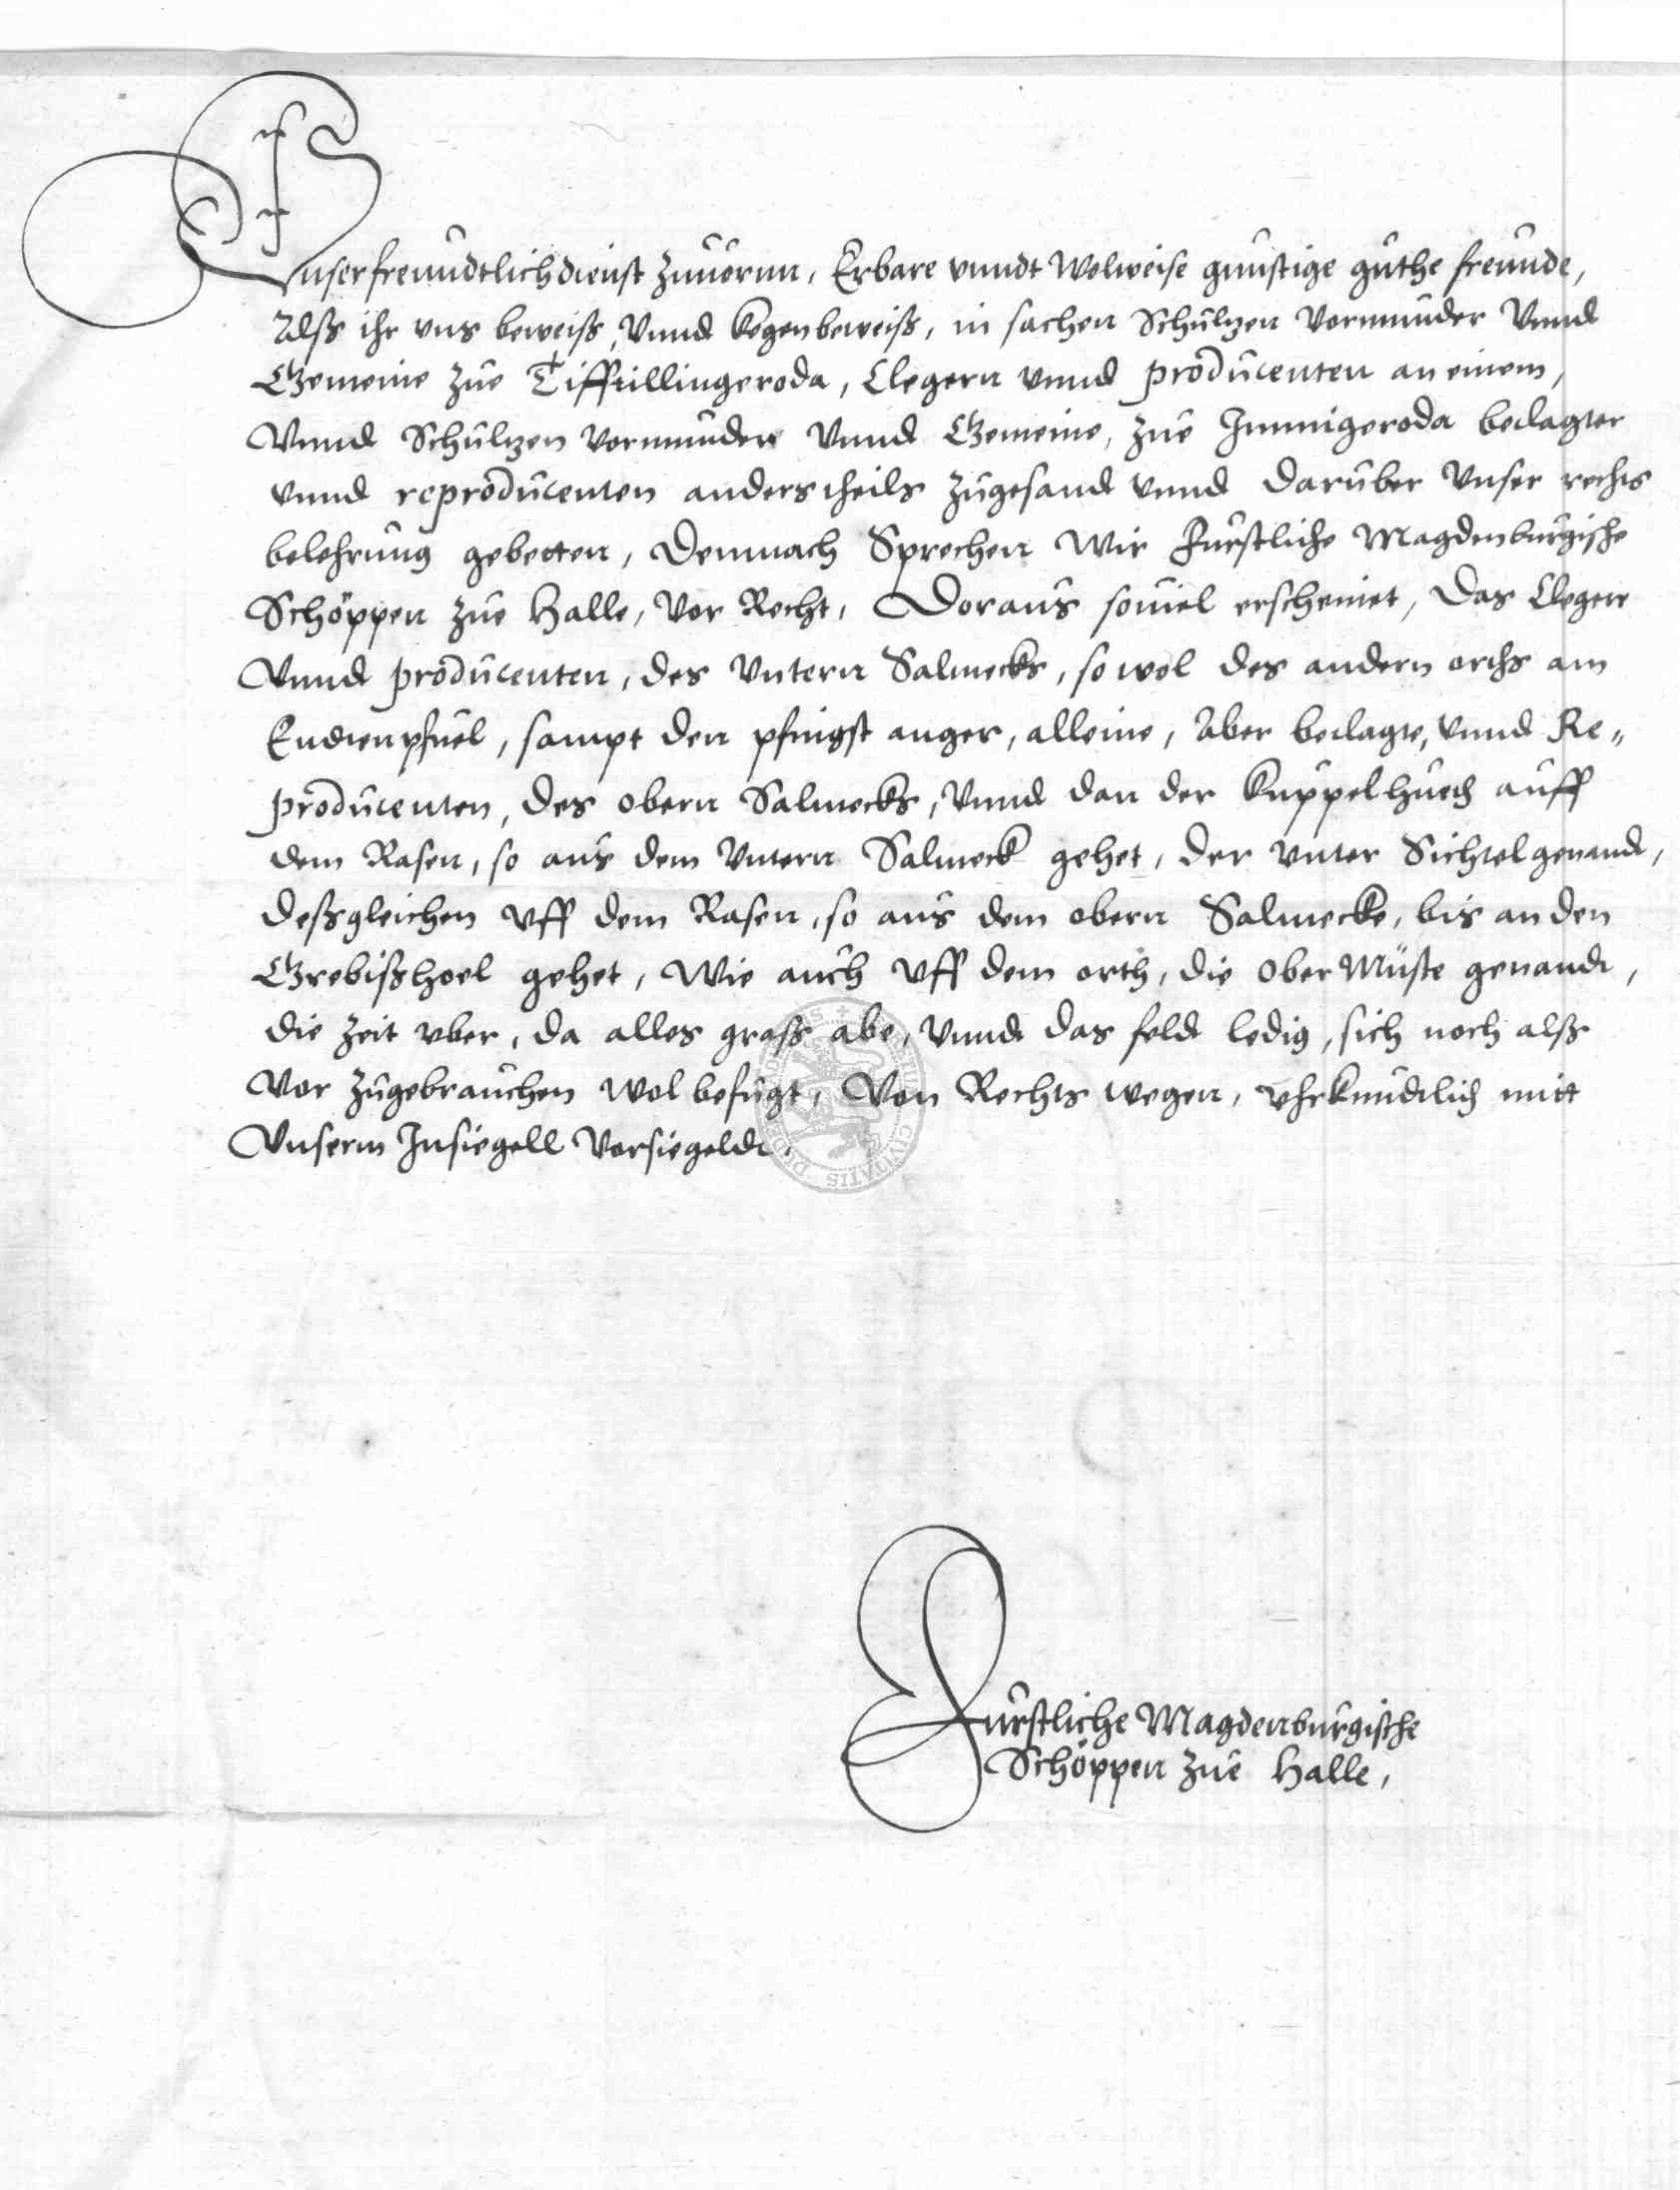 Unser freundtlich dienst zuuornn, Erbare vnndt Wolweise gunstige guthe freunde,
Alß ihr vns beweiß, Vnnd kegenbeweiß, in sachen Schultzen Vormunder Vnnd
Gemeine zue Tifftillingeroda, Clegern vnnd producenten an einem,
Vnnd Schultzen Vormunder Vnnd Gemeine, zue Immigeroda beclagter
vnnd reproducenten anderstheils zugesandt vnnd darüber Vnser rechts
belehrung gebetten, Demnach Sprechen Wir Furstliche Magdenburgische
Schöppen zue Halle, Vor Recht, Doraus souiel erscheinet, Das Clegere
Vnnd producenten, des Vntern Salmecks, so wol des andern orths am
Endtenpfuel, sampt den pfingst anger, alleine, Aber beclagte, Vnnd Re„
producenten, des obern Salmecks, Vnnd dan der kuppelhueth auff
dem Rasen, so aus dem Vntern Salmeck gehet, der vnter Sichtel genandt,
deßgleichen Vff dem Rasen, so aus dem obern Salmecke, bis an den
Grebißhoel gehet, Wie auch Vff dem orth, die Ober Müste genandt,
die Zeit vber, da alles graß abe, Vnndt das feldt ledig, sich noch alß
Vor zugebrauchen Wol befugt, Von Rechts wegen, Vhrkundtlich mitt
Vnserm Insiegell Vorsiegeldt,
Fürstliche Magdenburgische
Schöppen zue Halle,